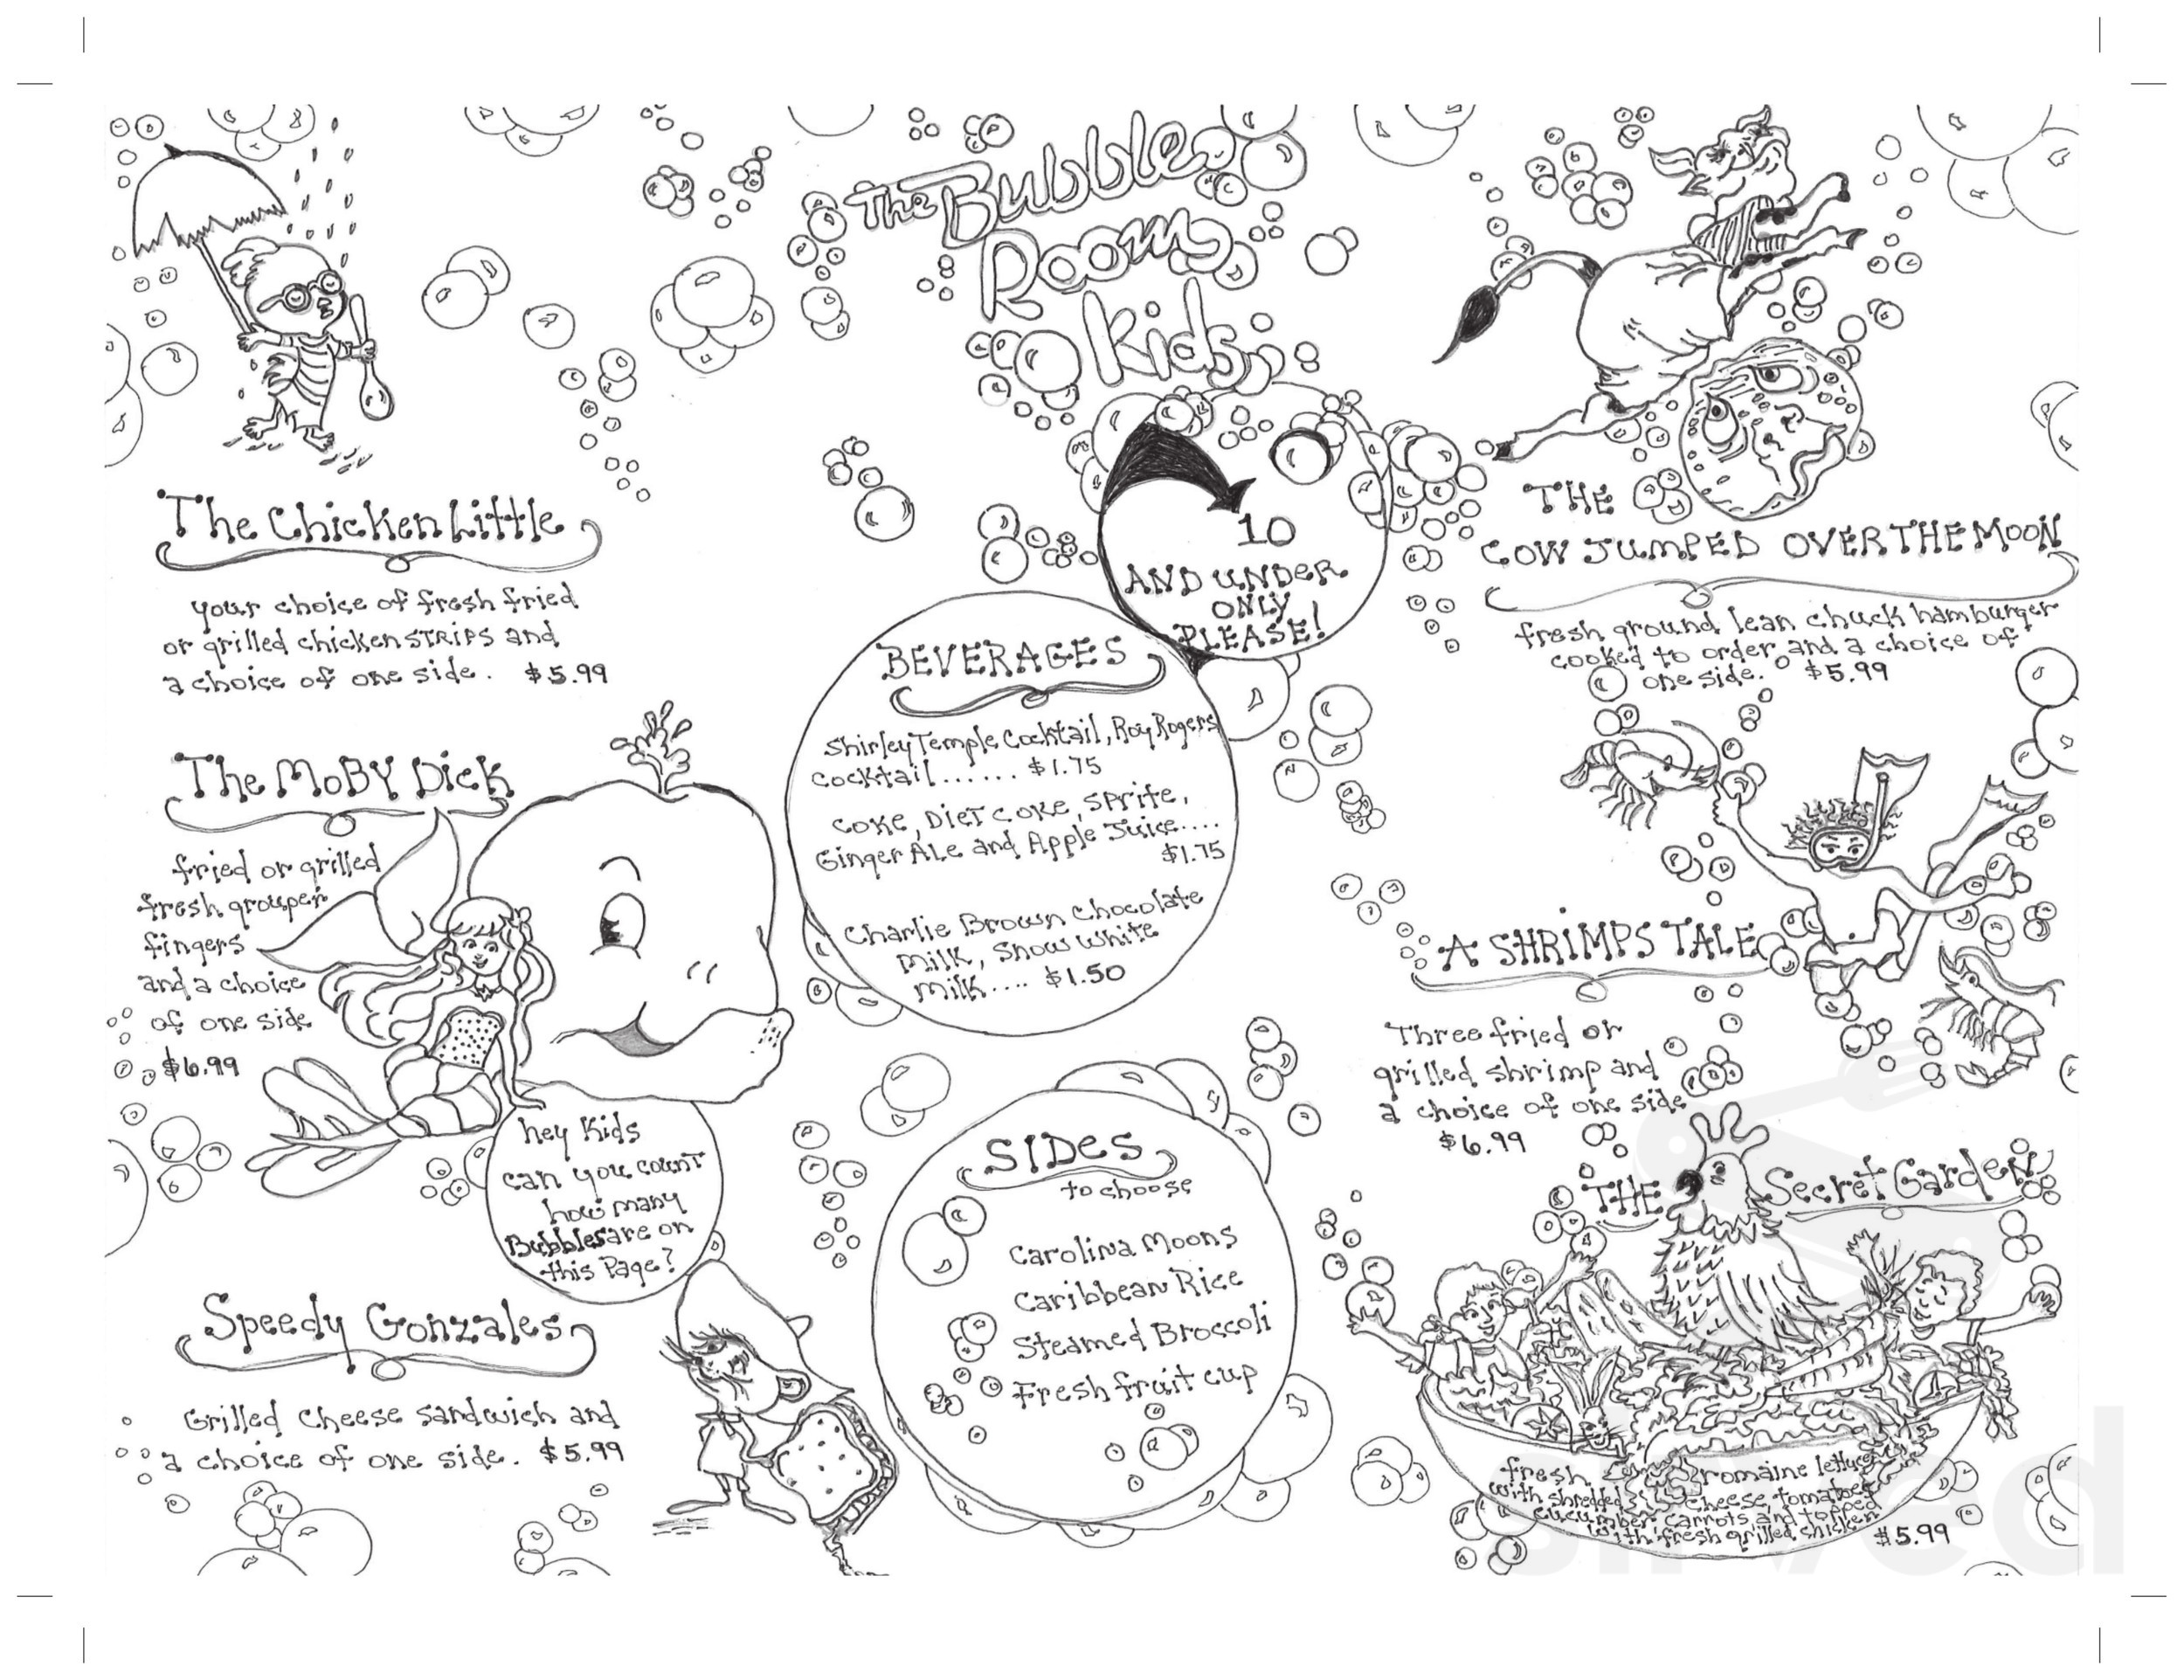 The Bubble
Room
Kids
10
AND UNDER
ONLY
PLEASE!
The Chicken Little
your choice of fresh fried
or grilled chicken STRIPS and
a choice of one side. $5.99
The MOBY Dick
fried or grilled
fresh grouper
fingers
and a choice
of one side
$6.99
hey Kids
can you count
how many
Bubbles are on
this Page?
Speedy Gonzales
Grilled cheese sandwich and
a choice of one side. $5.99
BEVERAGES
Shirley Temple Cocktail, Roy Rogers
Cocktail...... $1.75
COKE, DIET COKE, SPRITE,
Ginger Ale and Apple Juice....
$1.75
Charlie Brown Chocolate
Milk, Snow White
Milk.... $1.50
SIDES
to choose
Carolina Moons
Caribbean Rice
Steamed Broccoli
Fresh fruit cup
THE
COW JUMPED OVER THE MOON
fresh ground lean chuck hamburger
cooked to order and a choice of
one side. $5.99
A SHRIMPS TALE
Three fried or
grilled shrimp and
a choice of one side
$6.99
THE Secret Garden
fresh romaine lettuce
with shredded cheese, tomatoes
cucumber carrots and topped
with fresh grilled chicken $5.99
sirved